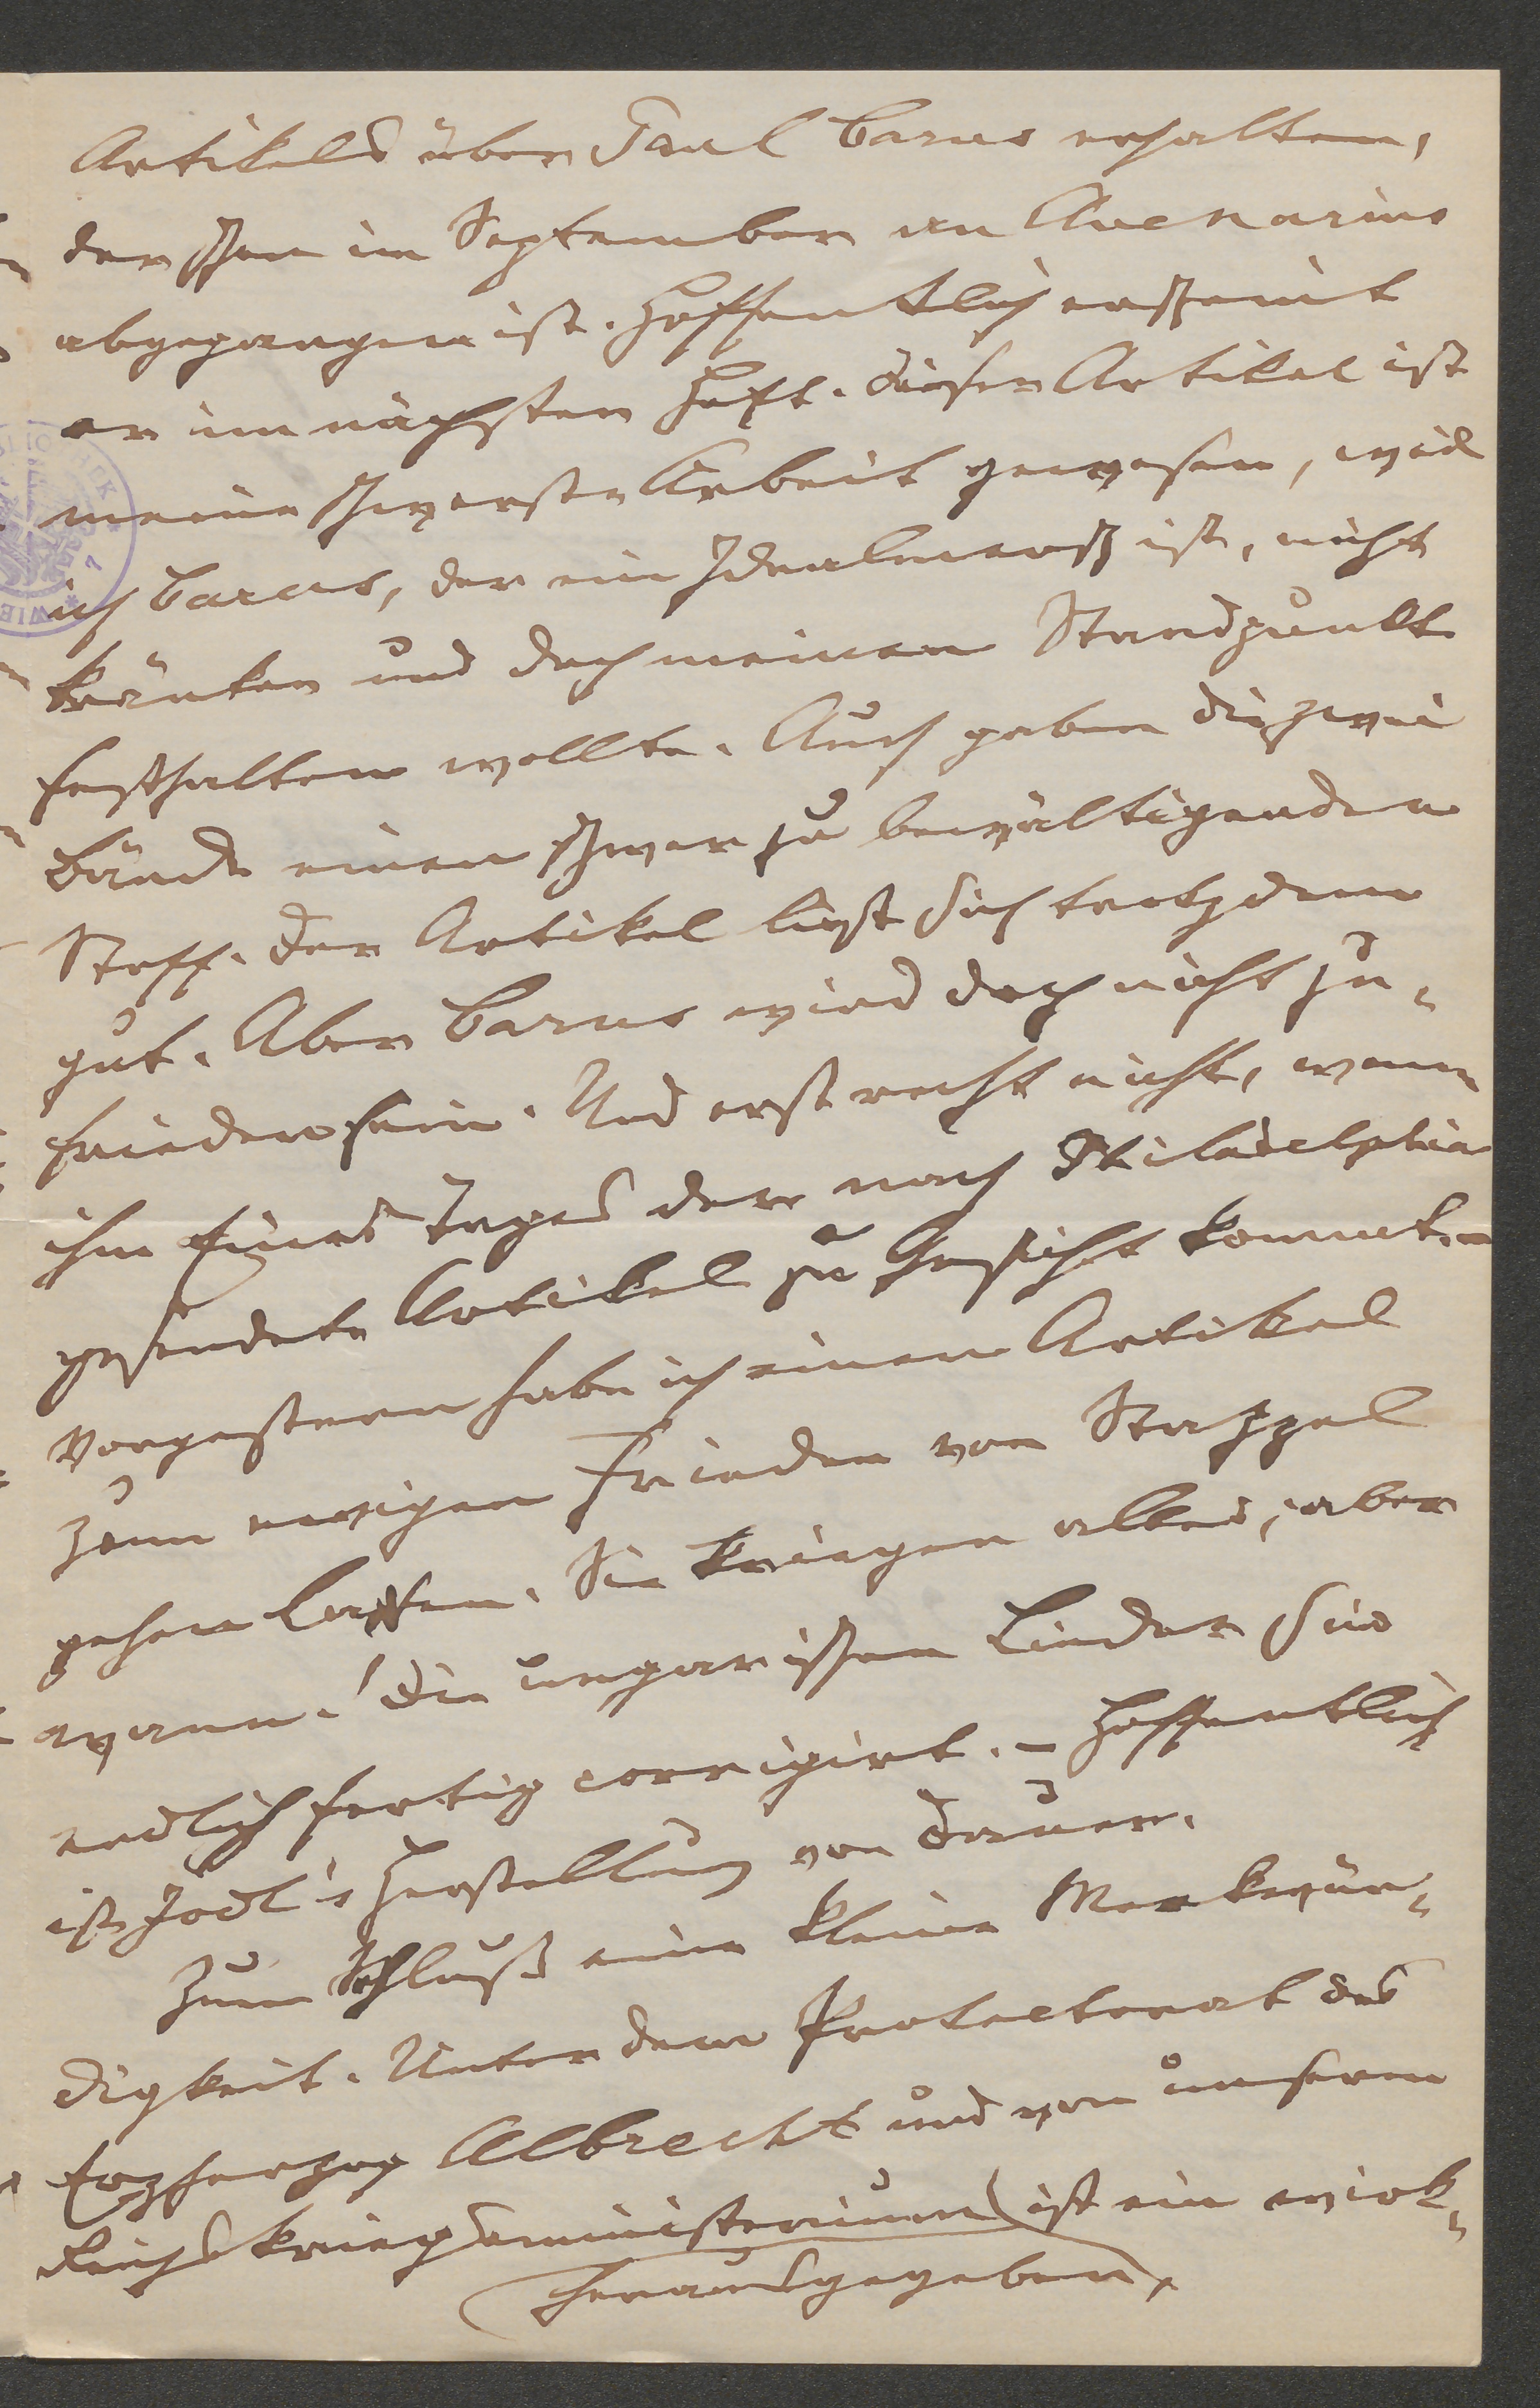 Artikels über Paul Carus erhalten,
der schon im September an Avenarius
abgegangen ist. Hoffentlich erscheint
er im nächsten Heft. Dieser Artikel ist
meine schwerste Arbeit gewesen, weil
ich Carus, der ein Idealmensch ist, nicht
kränken und doch meinen Standpunkt
festhalten wollte. Auch gaben die zwei
Bände einen schwer zu bewältigenden
Stoff. Der Artikel liest sich trotzdem
gut. Aber Carus wird doch nicht zu-
frieden sein. Und erst recht nicht, wenn
ihm Eines Tages der nach Philadelphia
gesendete Artikel zu Gesicht kommt. –
Vorgestern habe ich einen Artikel
zum ewigen Frieden vom Stappel
gehen lassen. Sie kriegen alles, aber
wann! Die ungarischen Lieder sind
endlich fertig corrigirt. – Hoffentlich
ist Jodl's Herstellung von Dauer.
Zum Schluß eine kleine Merkwür-
digkeit. Unter dem Protectorat des
Erzherzog Albrecht und von unserem
Reichskriegsministerium ist ein wirk-
herausgegeben,